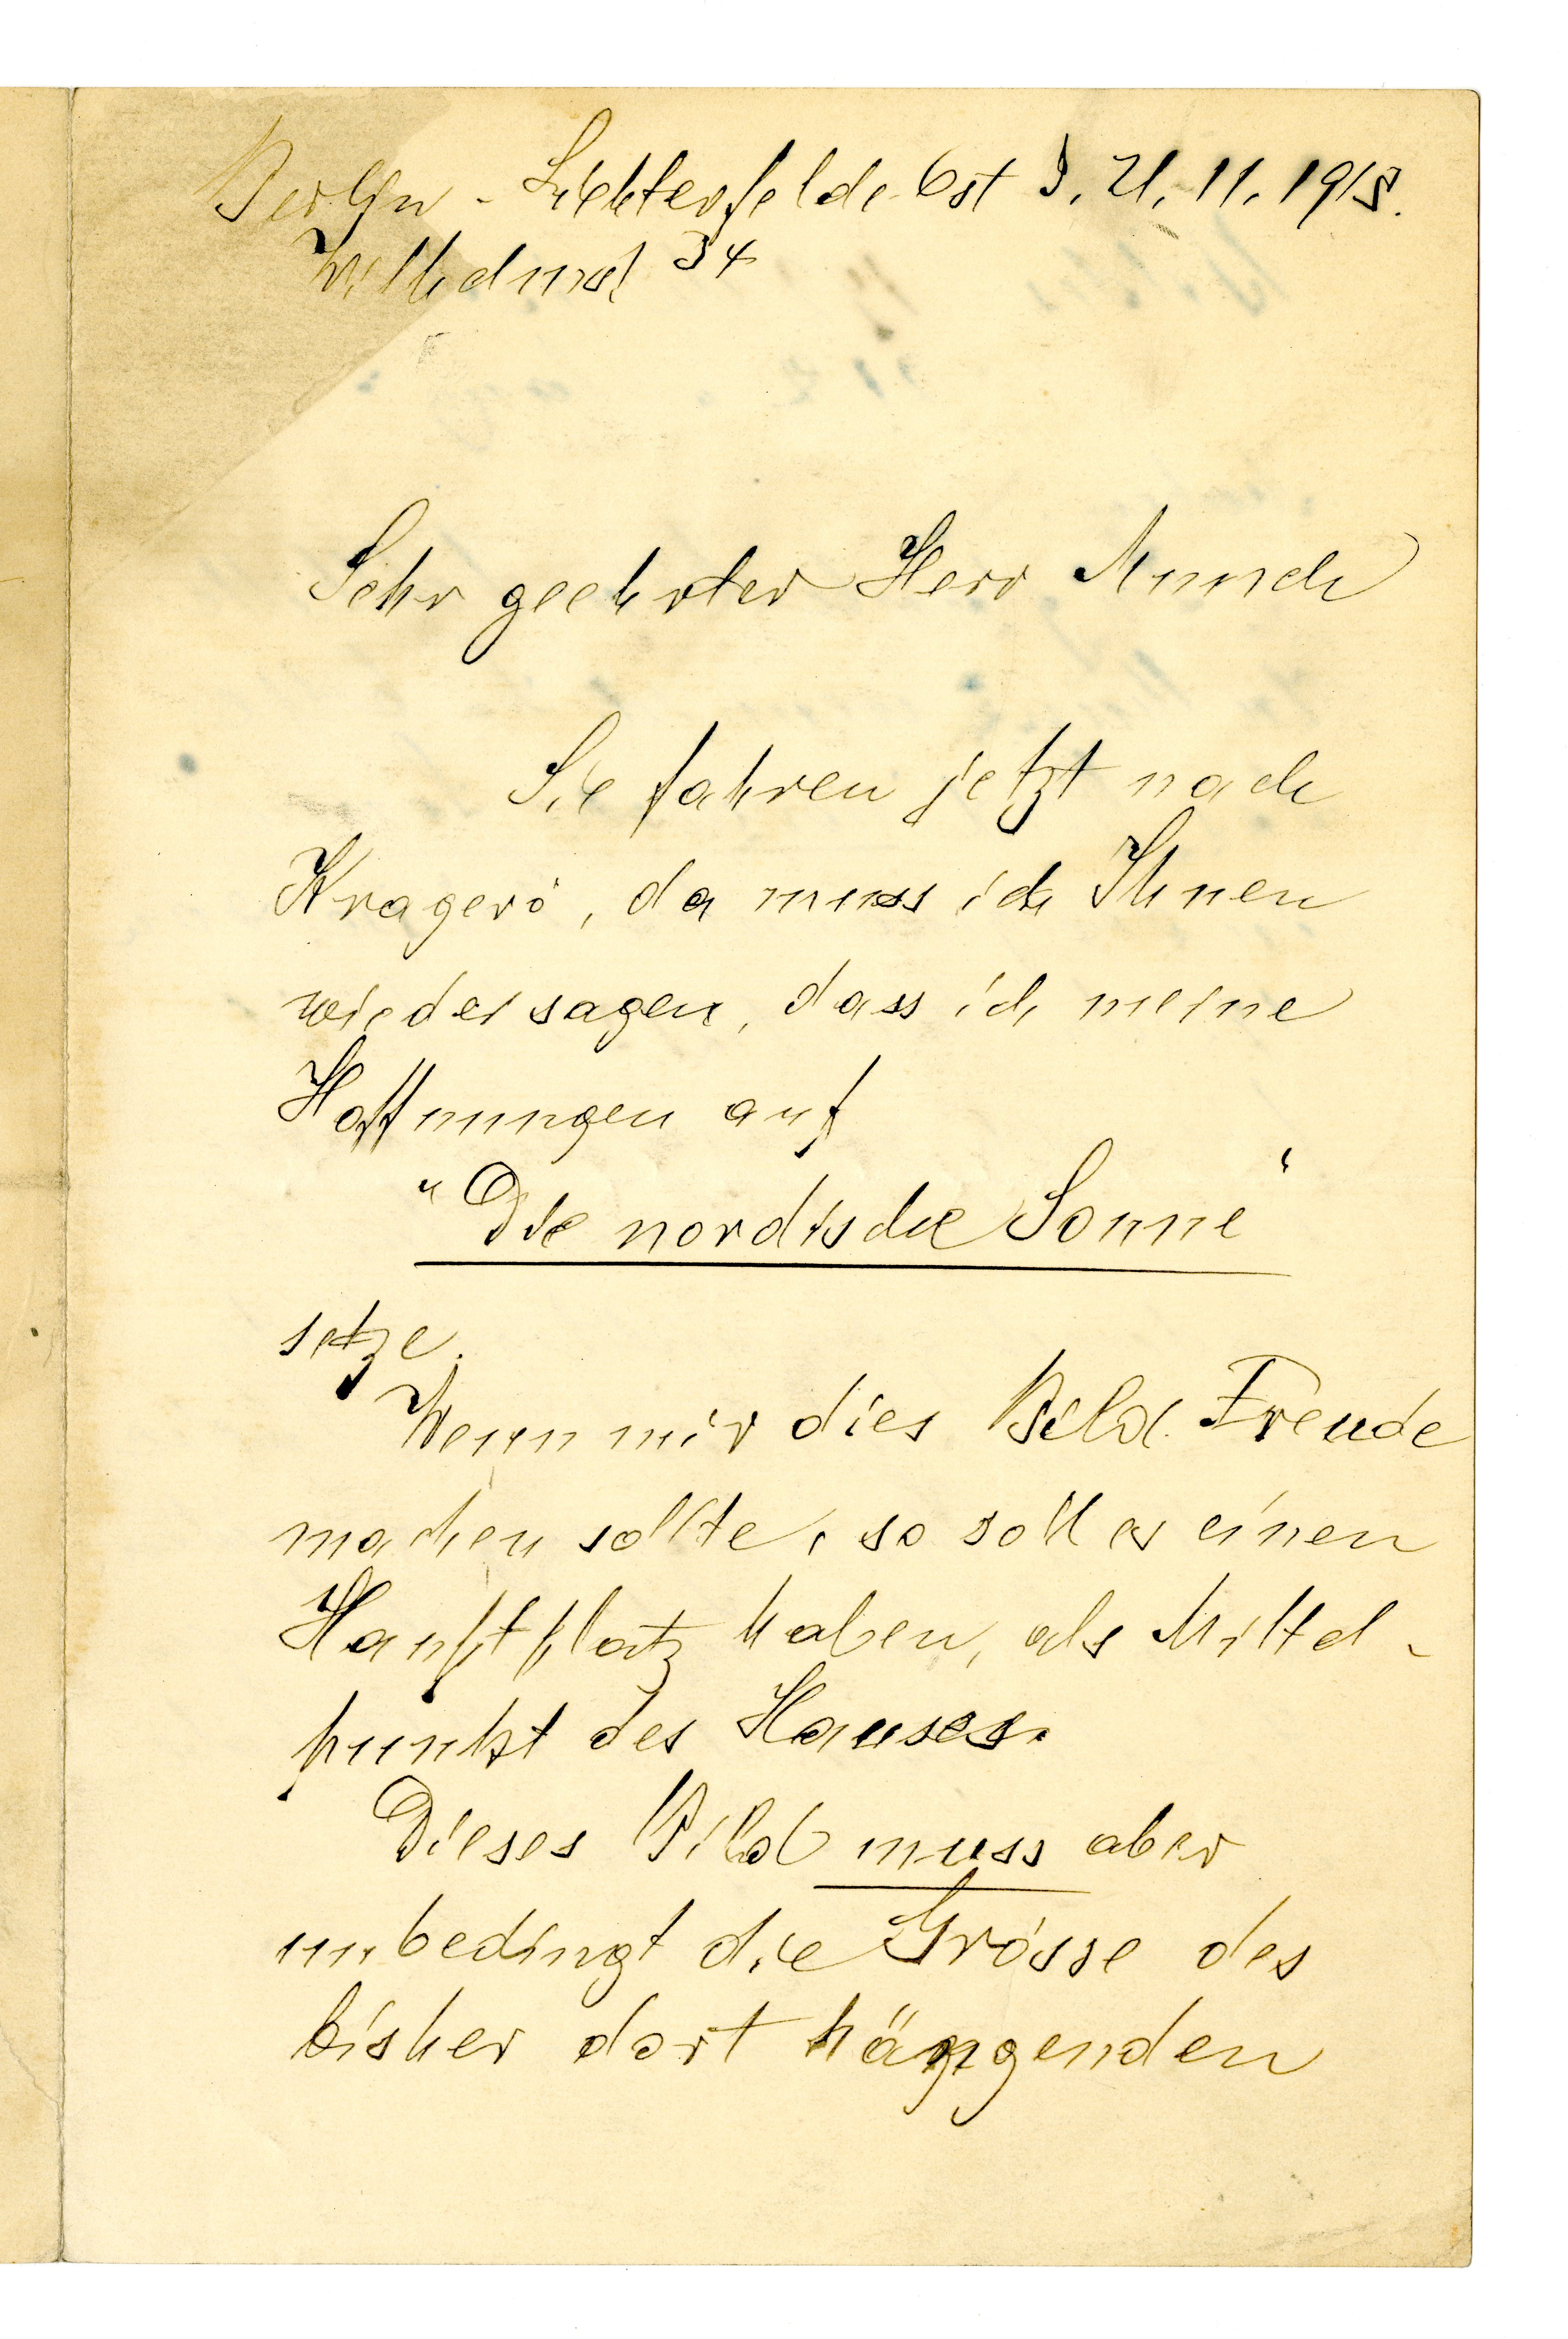 Berlin - Lichterfelde Ost 3. 21. 11. 1913.
Wilhelmst 34
Sehr geehrter Herr Munch
Sie fahren jetzt nach
Kragerö, da muss ich Ihnen
wieder sagen, dass ich meine
Hoffnungen auf
"Die nordische Sonne"
setze.
Wenn mir dies Bild Freude
machen sollte, so soll es einen
Hauptplatz haben, als Mittel-
punkt des Hauses.
Dieses Bild muss aber
unbedingt die Grösse des
bisher dort hängenden